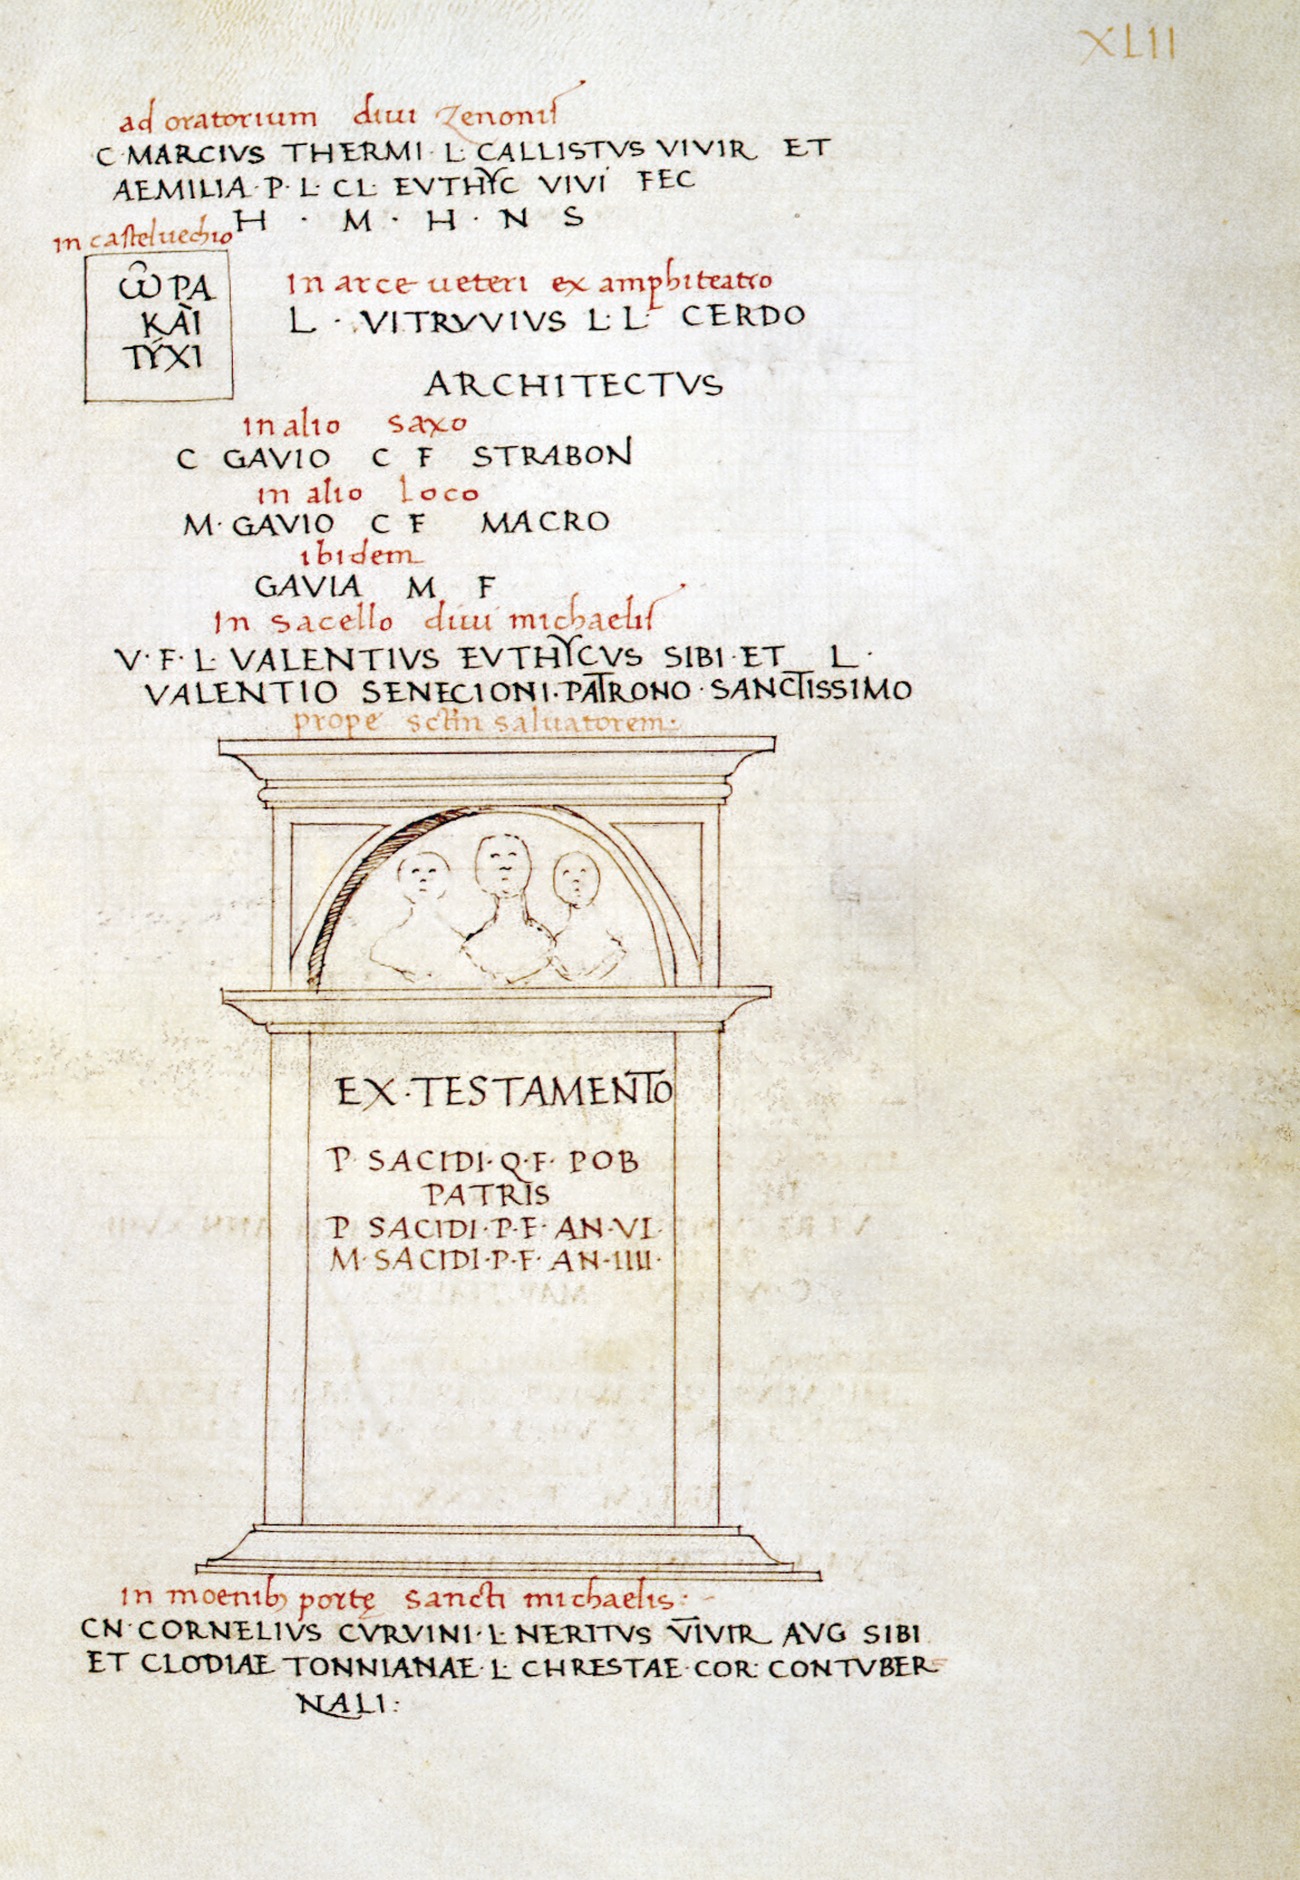 XLII
ad oratorium diui Zenonis
C·MARCIVS THERMI·L·CALLISTVS VIVIR ET
AEMILIA·P·L·CL·EVTHYC VIVI FEC
H · M · H · N S
in casteluechio
ῶΡΑ
ΚΑὶ
ΤΎΧΙ
In arce ueteri ex amphiteatro
L · VITRVVIVS L·L· CERDO
ARCHITECTVS
in alio saxo
C GAVIO C F STRABONI
in alio loco
M·GAVIO C F MACRO
ibidem
GAVIA M F
In sacello diui michaelis
V·F·L·VALENTIVS EVTHYCVS SIBI·ET L·
VALENTIO SENECIONI·PATRONO·SANCTISSIMO
prope sctm saluatorem:
EX·TESTAMENTO
P SACIDI·Q·F· POB
PATRIS
P SACIDI·P·F·AN·VI·
M·SACIDI·P·F·AN·IIII·
in moenib portę sancti michaelis:
CN·CORNELIVS CVRVINI·L·NERITVS V̅I̅VIR AVG SIBI
ET CLODIAE TONNIANAE·L·CHRESTAE·COR·CONTVBER
NALI: